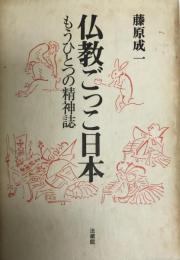 藤原成一
仏教ごっこ日本
もうひとつの精神誌
法藏館